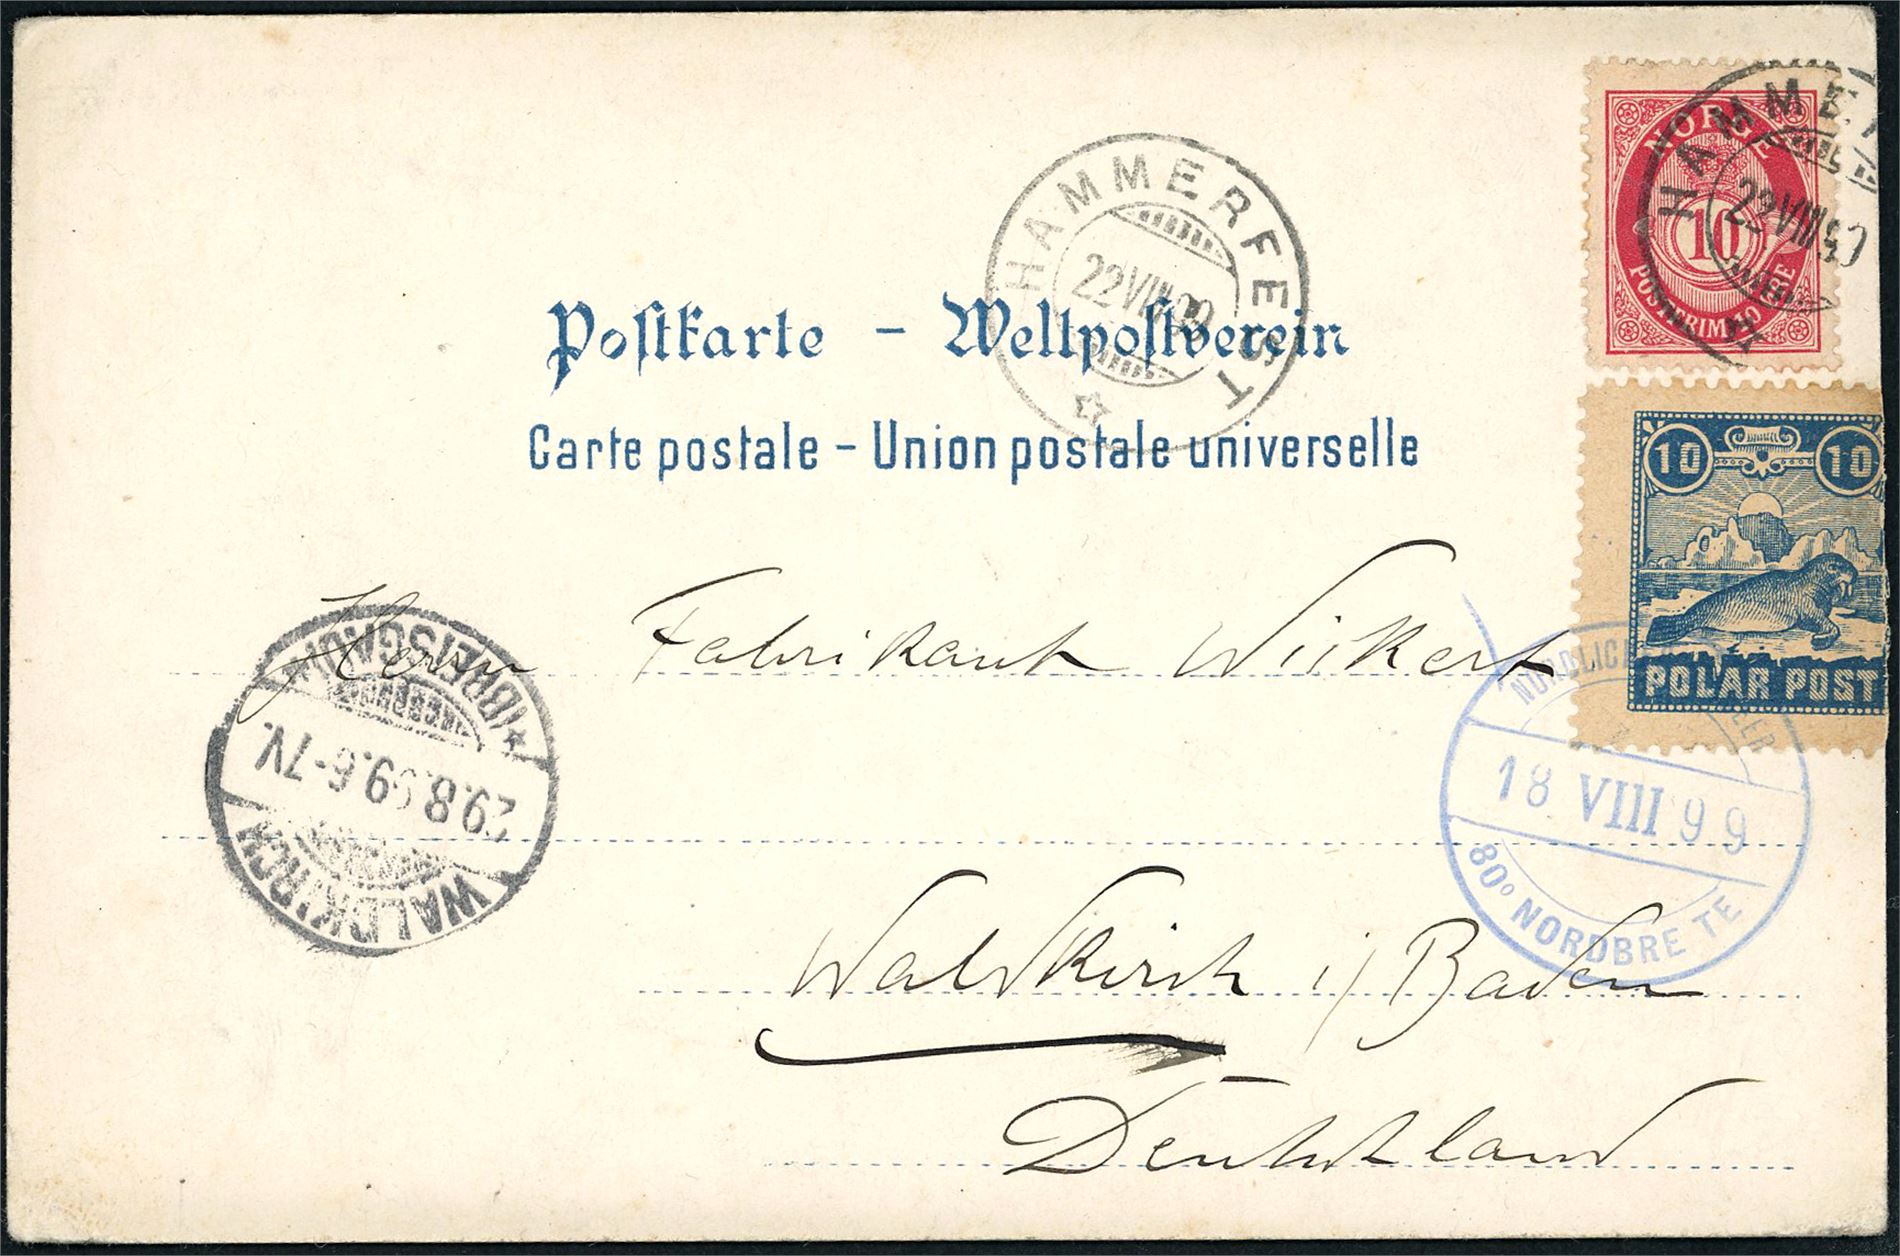 NORGE
10
POSTFRIM 10 ØRE
HAMME
22 VIII 9
HAMMERFEST
22 VIII 99
Postkarte – Weltpostverein
Carte postale – Union postale universelle
10 10
POLAR POST
Herrn Fabrikant Wickert
NORDLIC
18 VIII 99
80° NORDBRE TE
WALDKIRCH
29.8.99.6-7V.
*(BREISGAU)*
Waldkirch i/ Baden
Deutschland